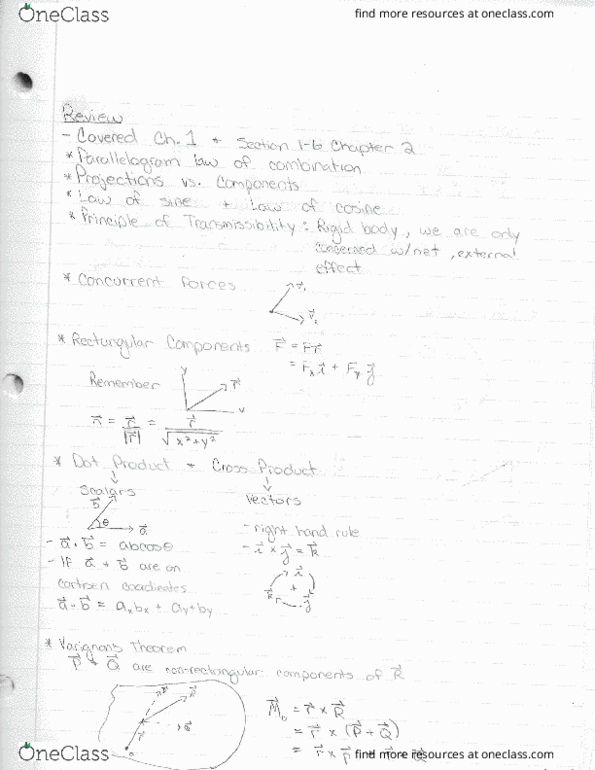 OneClass
find more resources at oneclass.com
Review
- Covered Ch. 1 + Section 1-6 Chapter 2
* Parallelogram law of combination
* Projections vs. Components
* Law of sine + Law of cosine
* Principle of Transmissibility : Rigid body, we are only
concerned w/net, external
effect
* Concurrent forces
* Rectangular Components F⃗ = Fn⃗
= Fₓ i⃗ + Fᵧ j⃗
Remember
y
r⃗
x
n⃗ = r⃗/|r⃗| = r⃗/√(x²+y²)
* Dot Product + Cross Product
↓ ↓
Scalars Vectors
b⃗
θ
a⃗
- right hand rule
- a⃗ · b⃗ = abcosθ
- i⃗ × j⃗ = k⃗
- If a⃗ + b⃗ are on
cartesn coordinates
i⃗
k⃗ + j⃗
a⃗ · b⃗ = aₓbₓ + ay+by
* Varignons Theorem
P⃗ + Q⃗ are non-rectangular components of R⃗
M⃗o = r⃗ × R⃗
= r⃗ × (P⃗ + Q⃗)
= r⃗ × P⃗ +
OneClass
find more resources at oneclass.com